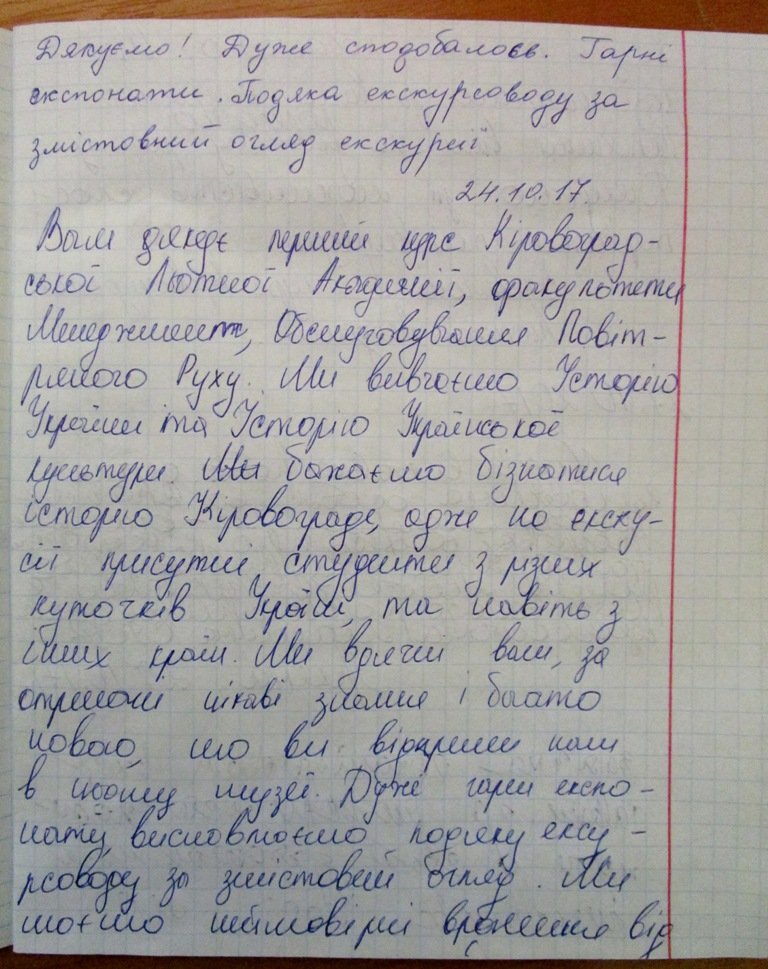 Дякуємо! Дуже сподобалось. Гарні
експонати. Подяка екскурсоводу за
змістовний огляд екскурії
24.10.17.
Вам дякує перший курс Кіровоград-
ської Льотної Академії, факультети
Менеджмент, Обслуговування Повіт-
ряного Руху. Ми вивчаємо Історію
України та Історію Української
культури. Ми бажаємо дізнатися
історію Кіровограде, адже на екску-
сії присутні студенти з різних
куточків України, та навіть з
інших країн. Ми вдячні вам, за
отримані цікаві знання і багато
нового, що ви відкрили нам
в цьому музеї. Дуже гарні експо-
нати, висловлюємо подяку екску-
рсоводу за змістовий огляд. Ми
маємо неймовірні враження від